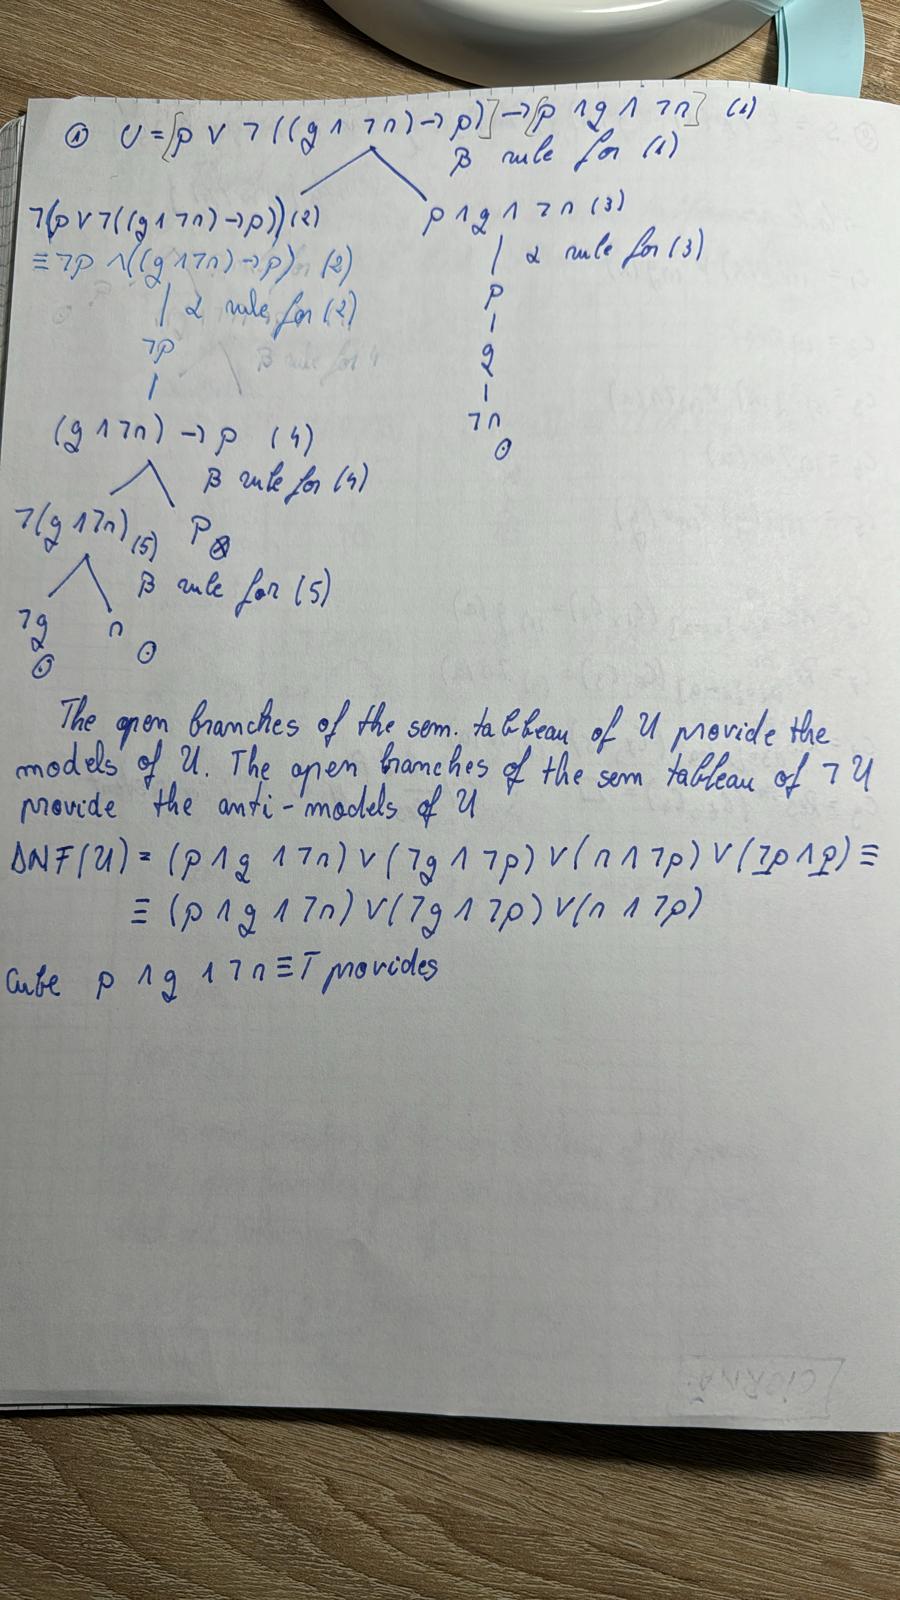 ① U = [p ∨ ¬((q ∧ ¬r) → p)] → [p ∧ q ∧ ¬r] (1)
β rule for (1)
¬(p ∨ ¬((q ∧ ¬r) → p)) (2)
p ∧ q ∧ ¬r (3)
≡ ¬p ∧ ((q ∧ ¬r) → p) (2)
| α rule for (3)
| α rule for (2)
p
¬p
q
β rule for 4
(q ∧ ¬r) → p (4)
¬r
⊙
β rule for (4)
¬(q ∧ ¬r) (5)
p ⊗
β rule for (5)
¬q
r
⊙
⊙
The open branches of the sem. tableau of U provide the
models of U. The open branches of the sem tableau of ¬U
provide the anti-models of U
DNF(U) = (p ∧ q ∧ ¬r) ∨ (¬q ∧ ¬p) ∨ (r ∧ ¬p) ∨ (¬p ∧ p) ≡
≡ (p ∧ q ∧ ¬r) ∨ (¬q ∧ ¬p) ∨ (r ∧ ¬p)
Cube p ∧ q ∧ ¬r ≡ T provides